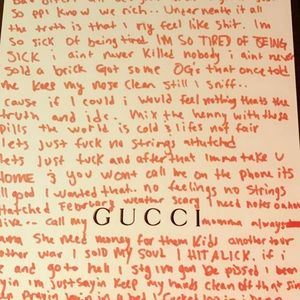 So ppl know we rich.. Underneate it all
the truth is that I my feel like shit. Im
so sick of being tired. IM SO TIRED OF BEING
SICK i aint never killed nobody i aint never
sold a brick Got some OGs that once told
me keep my nose clean still I sniff..
cause if I could i would feel nothing thats the
truth and idc. mix the henny with those
pills the world is cold & lifes not fair
lets just fuck no strings attatched
lets Just fuck and after that Imma take U
HOME & you wont call me on the phone its
all good I wanted that. no feelings no Strings
Hatched February weather scary I need notes
GUCCI
live.. call my momma always
She need money for them Kids another tour
other war I SOLD MY SOUL I HIT A LICK. if i
and go to hell I stg im gon be pissed I been
in Im just sayin keep my hands clean off that